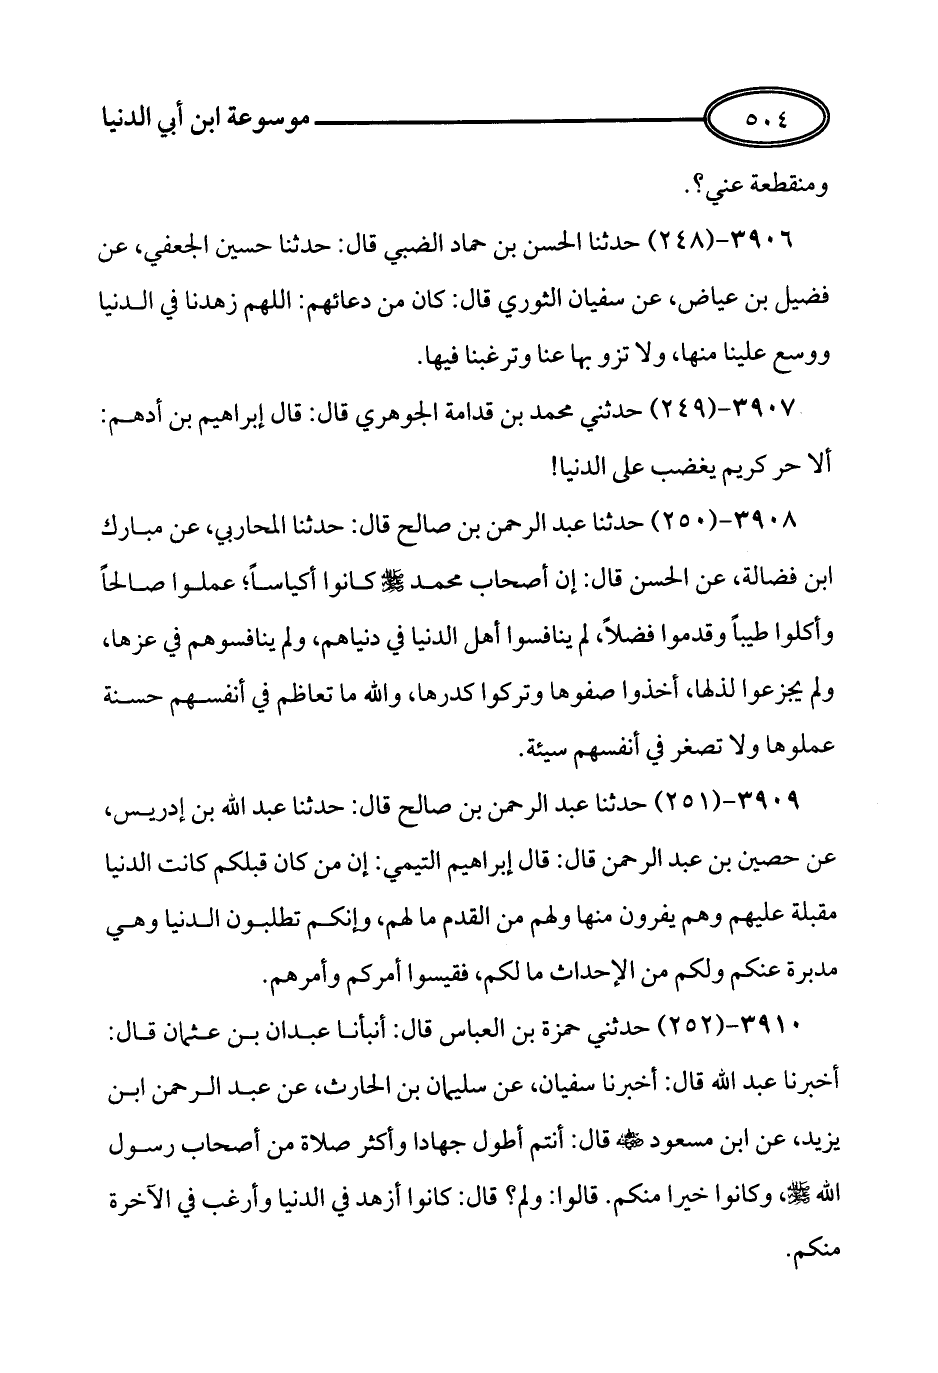 ٥٠٤ موسوعة ابن أبي الدنيا
ومنقطعة عني؟.
٣٩٠٦-(٢٤٨) حدثنا الحسن بن حماد الضبي قال: حدثنا حسين الجعفي، عن
فضيل بن عياض، عن سفيان الثوري قال: كان من دعائهم: اللهم زهدنا في الدنيا
ووسع علينا منها، ولا تزو بها عنا وترغبنا فيها.
٣٩٠٧-(٢٤٩) حدثني محمد بن قدامة الجوهري قال: قال إبراهيم بن أدهم:
ألا حر كريم يغضب على الدنيا!
٣٩٠٨-(٢٥٠) حدثنا عبد الرحمن بن صالح قال: حدثنا المحاربي، عن مبارك
ابن فضالة، عن الحسن قال: إن أصحاب محمد ﷺ كانوا أكياساً؛ عملوا صالحاً
وأكلوا طيباً وقدموا فضلاً، لم ينافسوا أهل الدنيا في دنياهم، ولم ينافسوهم في عزها،
ولم يجزعوا لذلها، أخذوا صفوها وتركوا كدرها، والله ما تعاظم في أنفسهم حسنة
عملوها ولا تصغر في أنفسهم سيئة.
٣٩٠٩-(٢٥١) حدثنا عبد الرحمن بن صالح قال: حدثنا عبد الله بن إدريس،
عن حصين بن عبد الرحمن قال: قال إبراهيم التيمي: إن من كان قبلكم كانت الدنيا
مقبلة عليهم وهم يفرون منها ولهم من القدم ما لهم، وإنكم تطلبون الدنيا وهي
مدبرة عنكم ولكم من الإحداث ما لكم، فقيسوا أمركم وأمرهم.
٣٩١٠-(٢٥٢) حدثني حمزة بن العباس قال: أنبأنا عبدان بن عثمان قال:
أخبرنا عبد الله قال: أخبرنا سفيان، عن سليمان بن الحارث، عن عبد الرحمن ابن
يزيد، عن ابن مسعود ﵁ قال: أنتم أطول جهادا وأكثر صلاة من أصحاب رسول
الله ﷺ، وكانوا خيرا منكم. قالوا: ولم؟ قال: كانوا أزهد في الدنيا وأرغب في الآخرة
منكم.